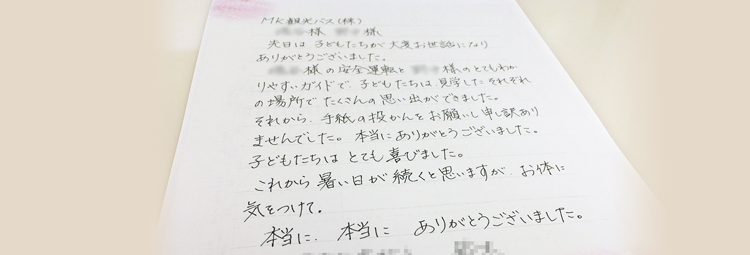 MK観光バス(株)
様 様
先日は子どもたちが大変お世話になり
ありがとうございました。
様の安全運転と 様のとてもわか
りやすいガイドで、子どもたちは、見学したそれぞれ
の場所でたくさんの思い出ができました。
それから、手紙の投かんをお願いし申し訳あり
ませんでした。本当にありがとうございました。
子どもたちはとても喜びました。
これから暑い日が続くと思いますが、お体に
気をつけて。
本当に、本当に ありがとうございました。